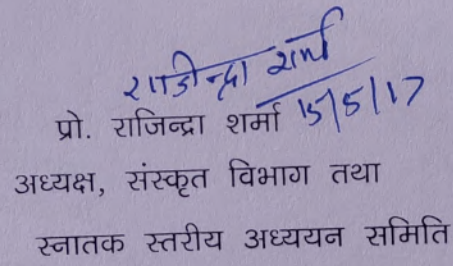 राजिन्द्रा शर्मा
15/5/17
प्रो. राजिन्द्रा शर्मा
अध्यक्ष, संस्कृत विभाग तथा
स्नातक स्तरीय अध्ययन समिति